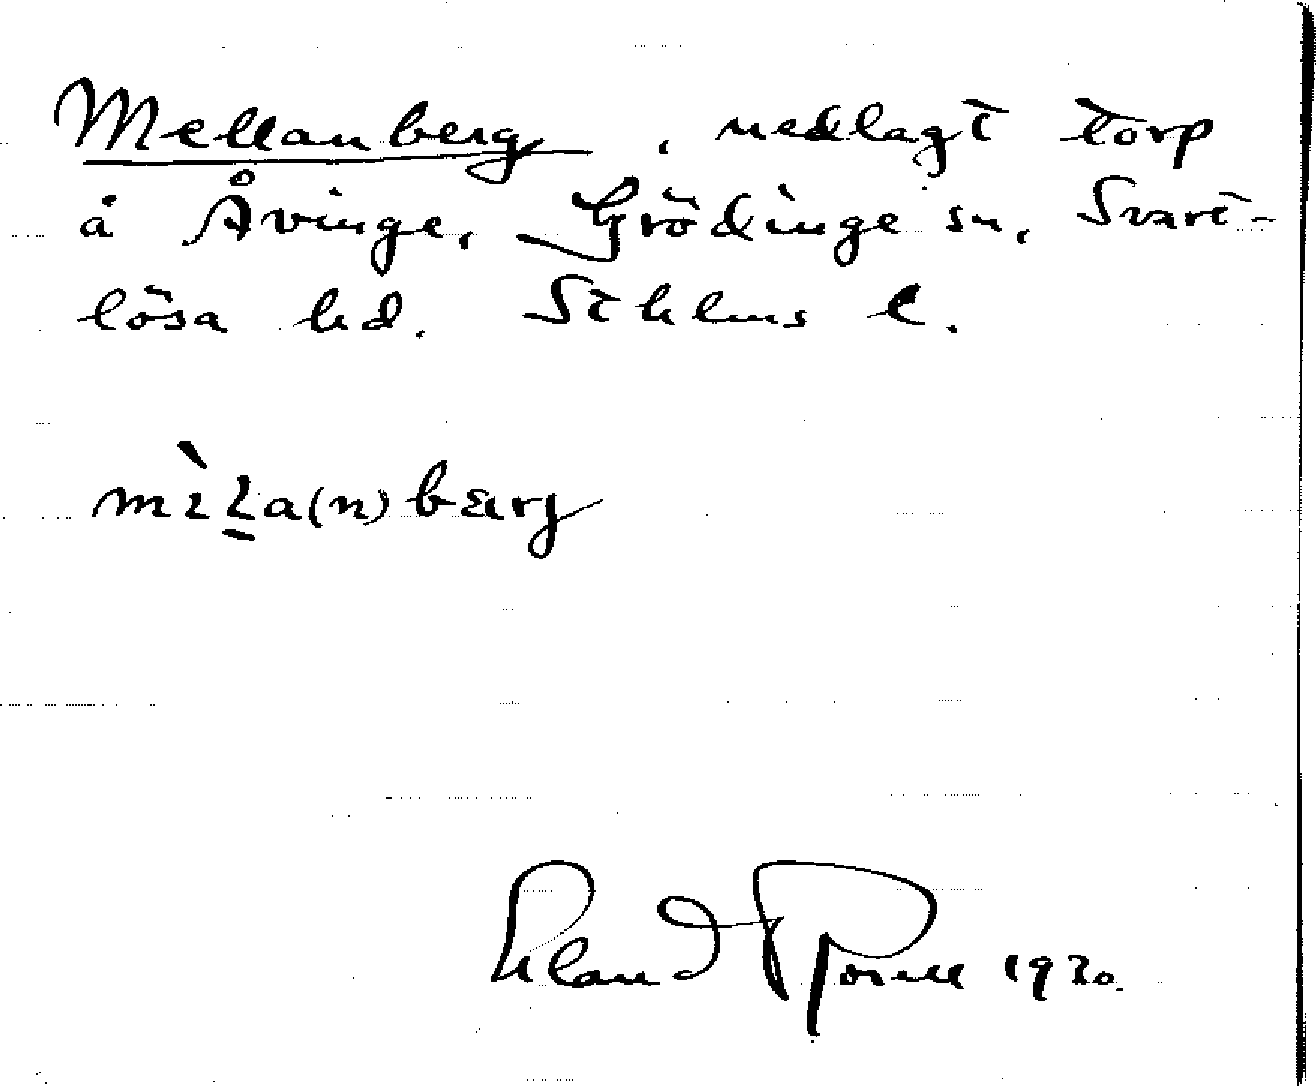 Mellanberg, nedlagt torp
å Åvinge, Grödinge sn, Svart-
lösa hd. Sthlms l.
mìla(n)bærj
1920.